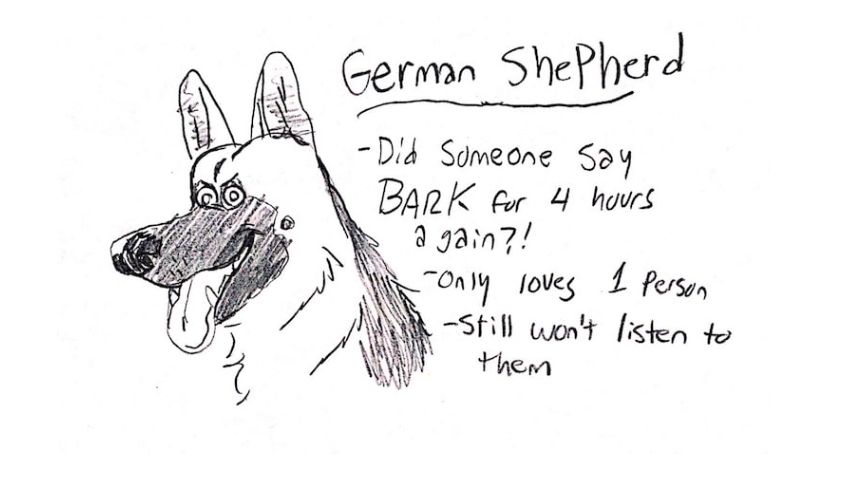 German ShePherd
-Did Someone Say
BARK for 4 hours
again?!
-Only loves 1 Person
-Still won't listen to
them